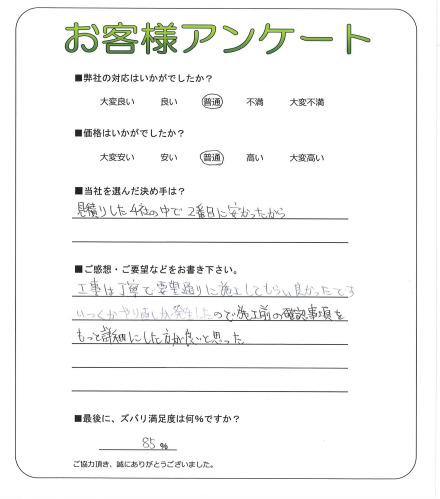 お客様アンケート
■弊社の対応はいかがでしたか？
大変良い 良い 普通 不満 大変不満
■価格はいかがでしたか？
大変安い 安い 普通 高い 大変高い
■当社を選んだ決め手は？
見積りした4社の中で2番目に安かったから
■ご感想・ご要望などをお書き下さい。
工事は丁寧で要望通りに施工してもらい良かったです
いくつかやり直しが発生したので施工前の確認事項を
もっと詳細にした方が良いと思った
■最後に、ズバリ満足度は何%ですか？
85 %
ご協力頂き、誠にありがとうございました。